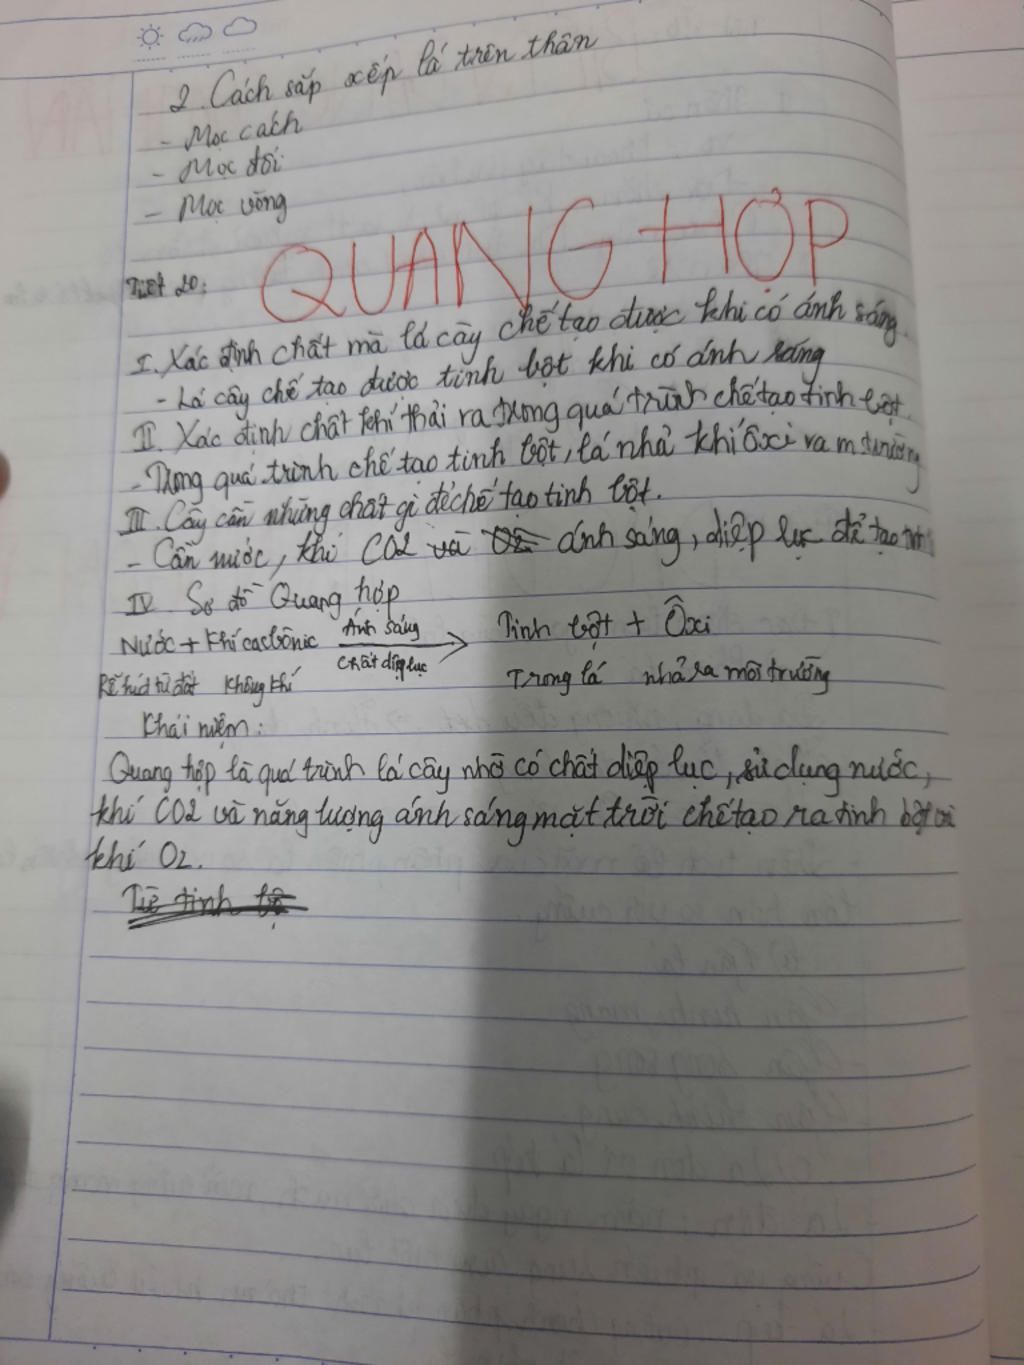 2. Cách sắp xếp lá trên thân
- Mọc cách
- Mọc đối
- Mọc vòng
Tiết 20: QUANG HỢP
I. Xác định chất mà lá cây chế tạo được khi có ánh sáng.
- Lá cây chế tạo được tinh bột khi có ánh sáng
II. Xác định chất khí thải ra trong quá trình chế tạo tinh bột.
- Trong quá trình chế tạo tinh bột, lá nhả khí Ôxi ra m trường
III. Cây cần những chất gì để chế tạo tinh bột.
- Cần nước, khí CO2 và ánh sáng, diệp lục để tạo
IV. Sơ đồ Quang hợp
Nước + Khí cacbônic Ánh sáng Tinh bột + Ôxi
Chất diệp lục
Rễ hút từ đất Không khí Trong lá nhả ra môi trường
Khái niệm:
Quang hợp là quá trình lá cây nhờ có chất diệp lục, sử dụng nước,
khí CO2 và năng lượng ánh sáng mặt trời chế tạo ra tinh bột và
khí O2.
Từ tinh bộ